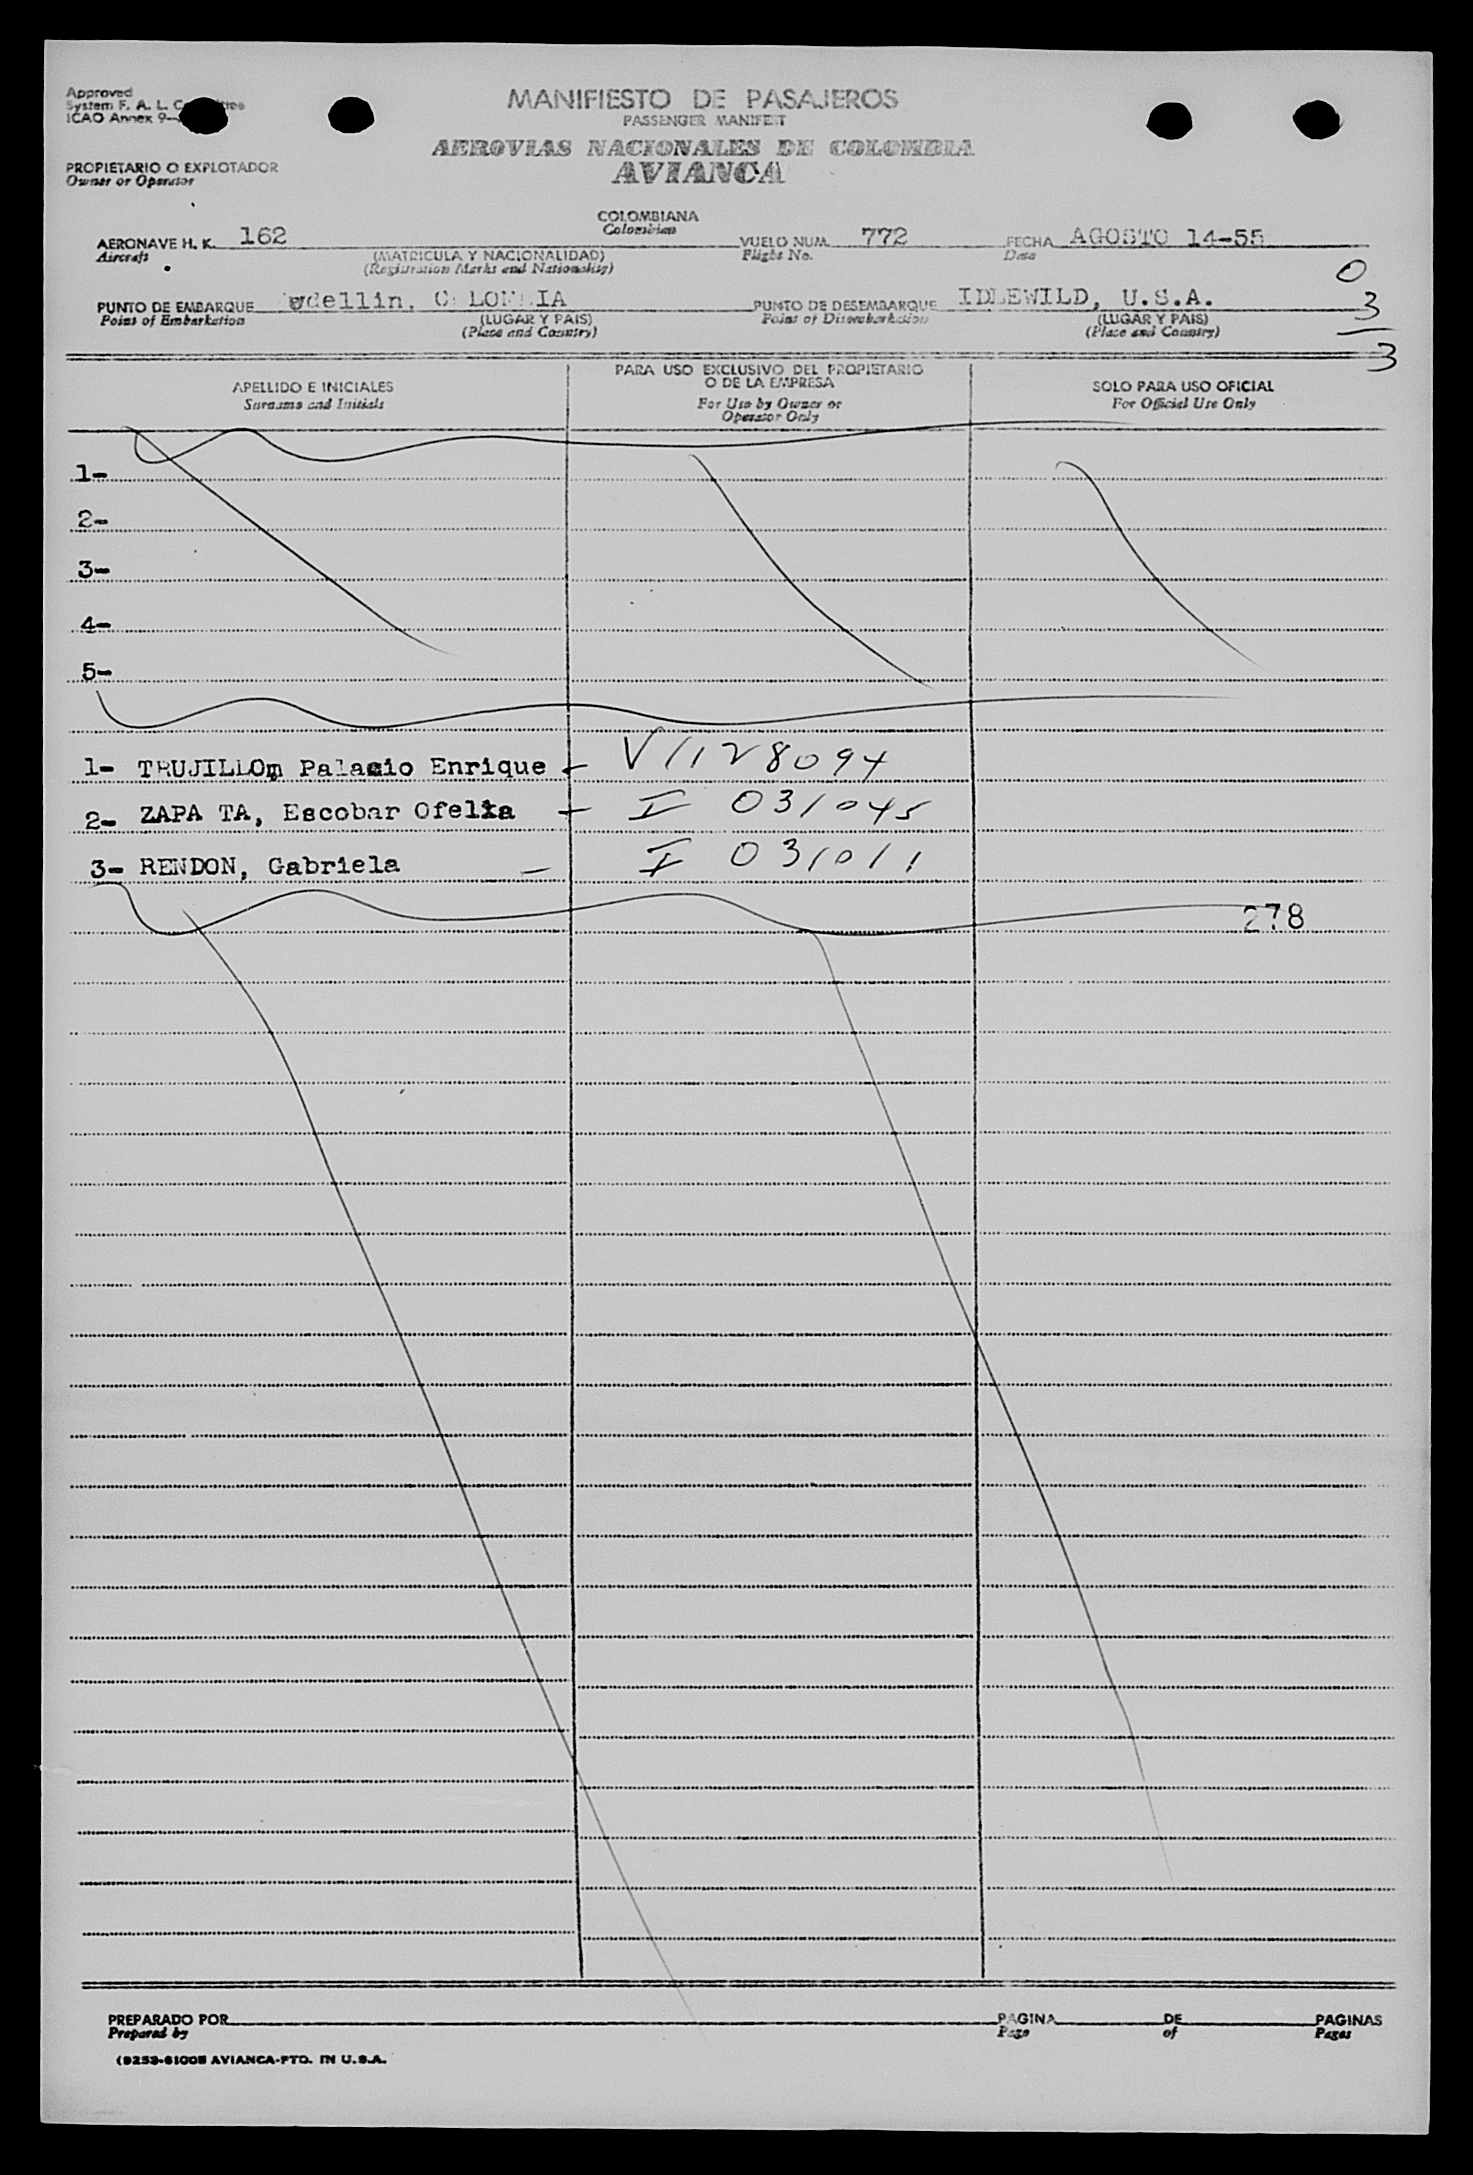 Approved
System F. A. L.
ICAO Annex 9-
MANIFIESTO DE PASAJEROS
PASSENGER MANIFEST
AEROVIAS NACIONALES DE COLOMBIA
AVIANCA
PROPIETARIO O EXPLOTADOR
Owner or Operator
COLOMBIANA
Colombian
AERONAVE H. K. 162 VUELO NUM. 772 FECHA AGOSTO 14-55
Aircraft (MATRICULA Y NACIONALIDAD) Flight No. Date
(Registration Marks and Nationality)
0
PUNTO DE EMBARQUE Medellin, COLOMBIA PUNTO DE DESEMBARQUE IDLEWILD, U.S.A. 3
Point of Embarkation (LUGAR Y PAIS) Point of Disembarkation (LUGAR Y PAIS)
(Place and Country) (Place and Country)
3
APELLIDO E INICIALES PARA USO EXCLUSIVO DEL PROPIETARIO O DE LA EMPRESA SOLO PARA USO OFICIAL
Surname and Initials For Use by Owner or Operator Only For Official Use Only
1-
2-
3-
4-
5-
1- TRUJILLOm Palacio Enrique - V 1128094
2- ZAPA TA, Escobar Ofelia - I 031045
3- RENDON, Gabriela - I 031011
278
PREPARADO POR PAGINA DE PAGINAS
Prepared by Page of Pages
AVIANCA-PTD. IN U.S.A.